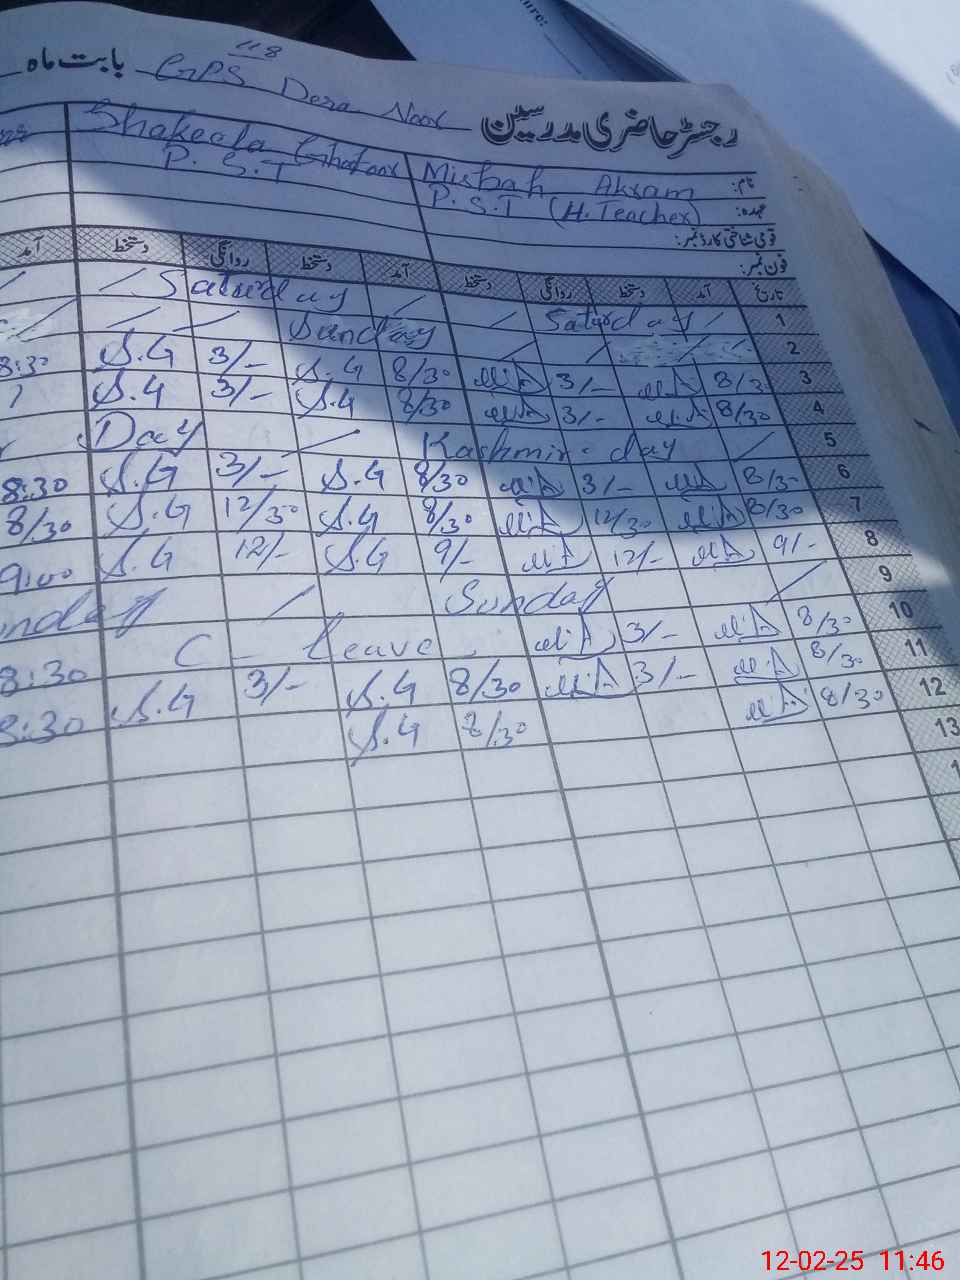 ure:
118
رجسٹر حاضری مدرسین GPS Dera Noor بابت ماہ
نام: Misbah Akram Shakeela Ghafoor
عہدہ: P.S.T (H.Teacher) P.S.T
قومی شناختی کارڈ نمبر:
فون نمبر:
تاریخ آمد دستخط روانگی دستخط آمد دستخط روانگی دستخط آمد
1 / Saturday / / Saturday / /
2 / / / Sunday / / /
3 8/30 M.A 3/- M.A 8/30 S.G 3/- S.G 8:30
4 8/30 M.A 3/- M.A 8/30 S.G 3/- S.G
5 / Kashmir day / Day
6 8/30 M.A 3/- M.A 8/30 S.G 3/- S.G 8:30
7 8/30 M.A 12/30 M.A 8/30 S.G 12/30 S.G 8/30
8 9/- M.A 12/- M.A 9/- S.G 12/- S.G 9:00
9 / Sunday / nday
10 8/30 M.A 3/- M.A C - leave 8:30
11 8/30 M.A 3/- M.A 8/30 S.G 3/- S.G 8:30
12 8/30 M.A 8/30 S.G
13
12-02-25 11:46